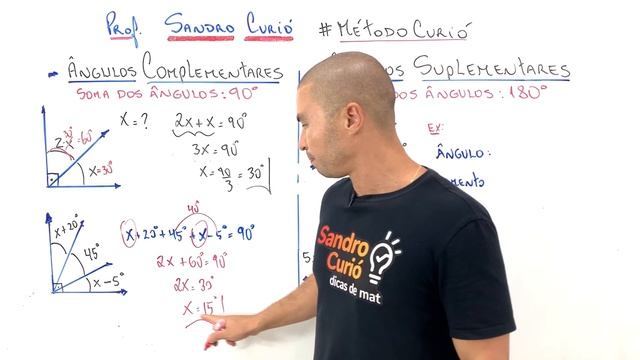 PROF. SANDRO CURIÓ #MÉTODO CURIÓ
- ÂNGULOS COMPLEMENTARES
SOMA DOS ÂNGULOS: 90°
X = ?
2X + X = 90°
3X = 90°
X = 90/3 = 30°
30°
2·X = 60°
X = 30°
X + 20°
45°
X - 5°
40°
X + 20° + 45° + X - 5° = 90°
2X + 60° = 90°
2X = 30°
X = 15°
SUPLEMENTARES
DOS ÂNGULOS: 180°
EX:
ÂNGULO:
Sandro
Curió
dicas de mat